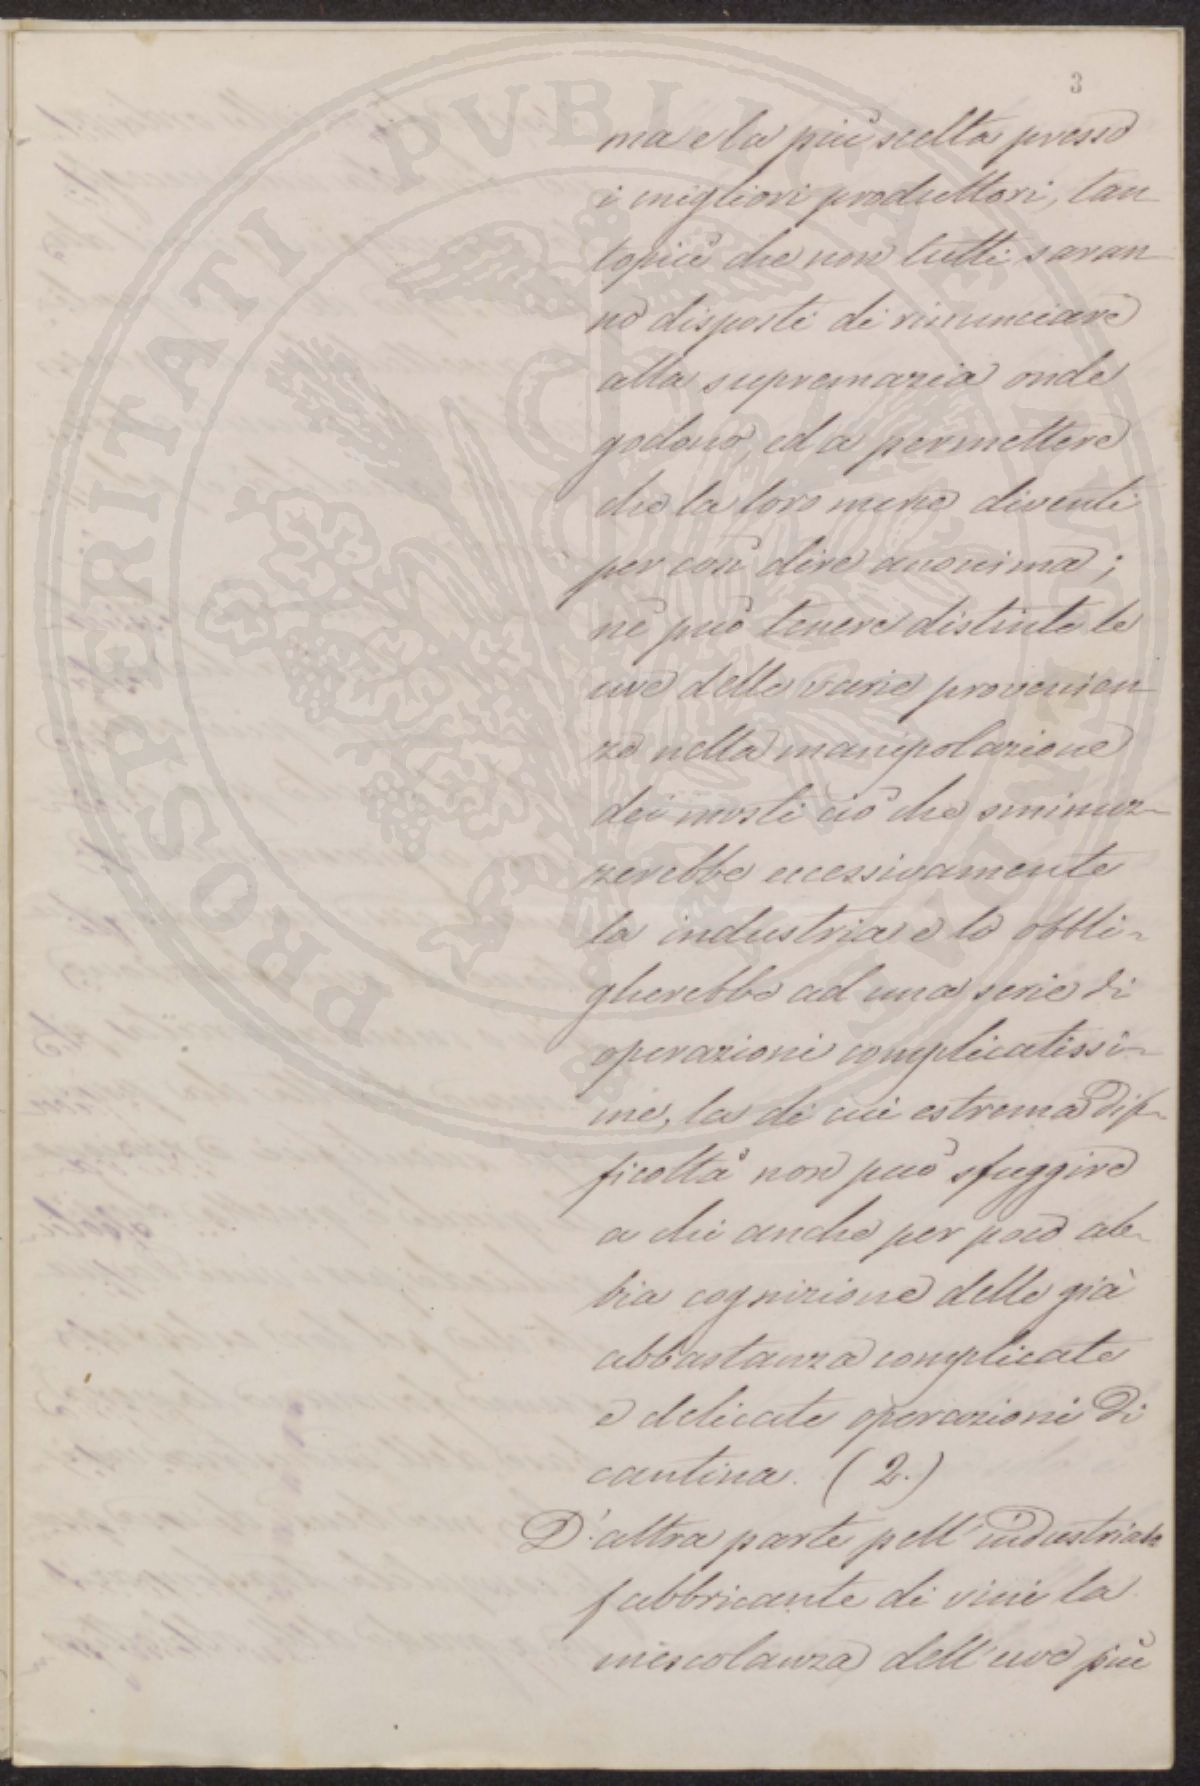 3
ma e la più scelta presso
i migliori produttori, tan
topiù che non tutti saran
no disposti di rinunciare
alla supremazia onde
godono, ed a permettere
che la loro merce diventi
per così dire anonima;
nè può tenere distinte le
uve delle varie provenien
ze nella manipolazione
dei mosti ciò che sminuz-
zerebbe eccessivamente
la industria e lo obbli-
gherebbe ad una serie di
operazioni complicatissi-
me, la di cui estrema dif-
ficoltà non può sfuggire
a chi anche per poco ab-
bia cognizione delle già
abbastanza complicate
e delicate operazioni di
cantina. (2.)
D'altra parte pell'industriale
fabbricante di vini la
mescolanza dell'uve più
PROSPERITATI PVBLICAE